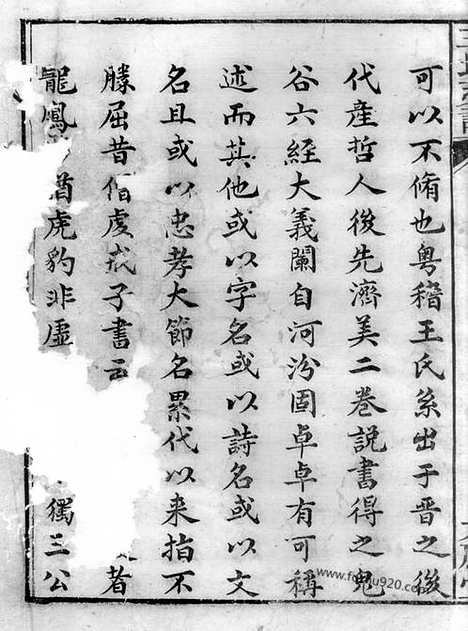 可以不脩也粤稽王氏系出于晋之後
代產哲人後先濟美二卷說書得之鬼
谷六經大義闡自河汾固卓卓有可稱
述而其他或以字名或以詩名或以文
名且或以忠孝大節名累代以来指不
勝屈昔伯虔戒子書云著
龍鳳猶虎豹非虛獨三公